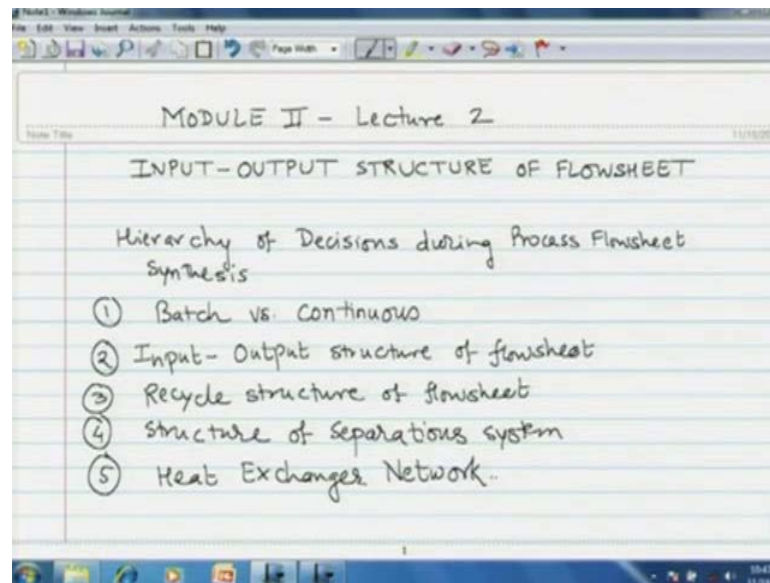 Note1 - Windows Journal
File Edit View Insert Actions Tools Help
Page Width
MODULE II - Lecture 2
Note Title
INPUT-OUTPUT STRUCTURE OF FLOWSHEET
Hierarchy of Decisions during Process Flowsheet
Synthesis
① Batch vs. Continuous
② Input-Output structure of flowsheet
③ Recycle structure of flowsheet
④ Structure of Separations system
⑤ Heat Exchanger Network..
1